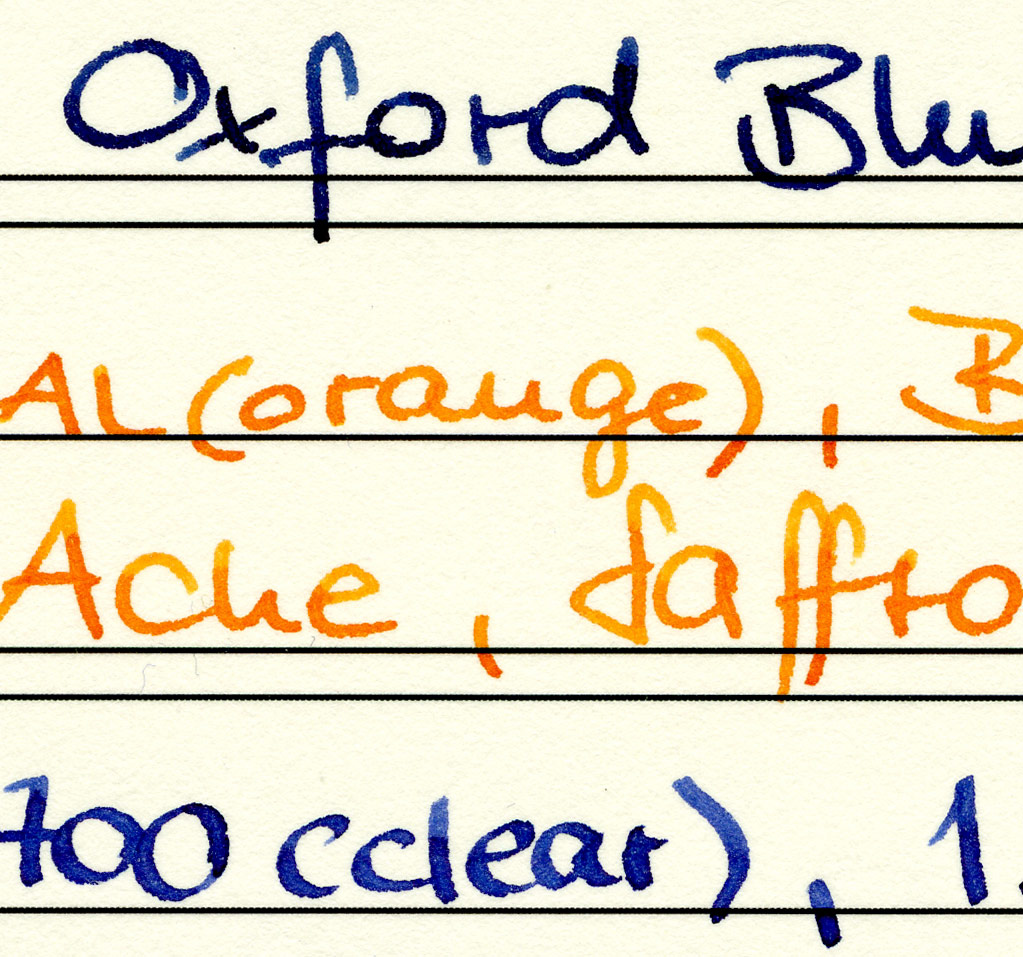 Oxford Blu
AL (orange), B
Ache, Saffro
700 cclear), 1.